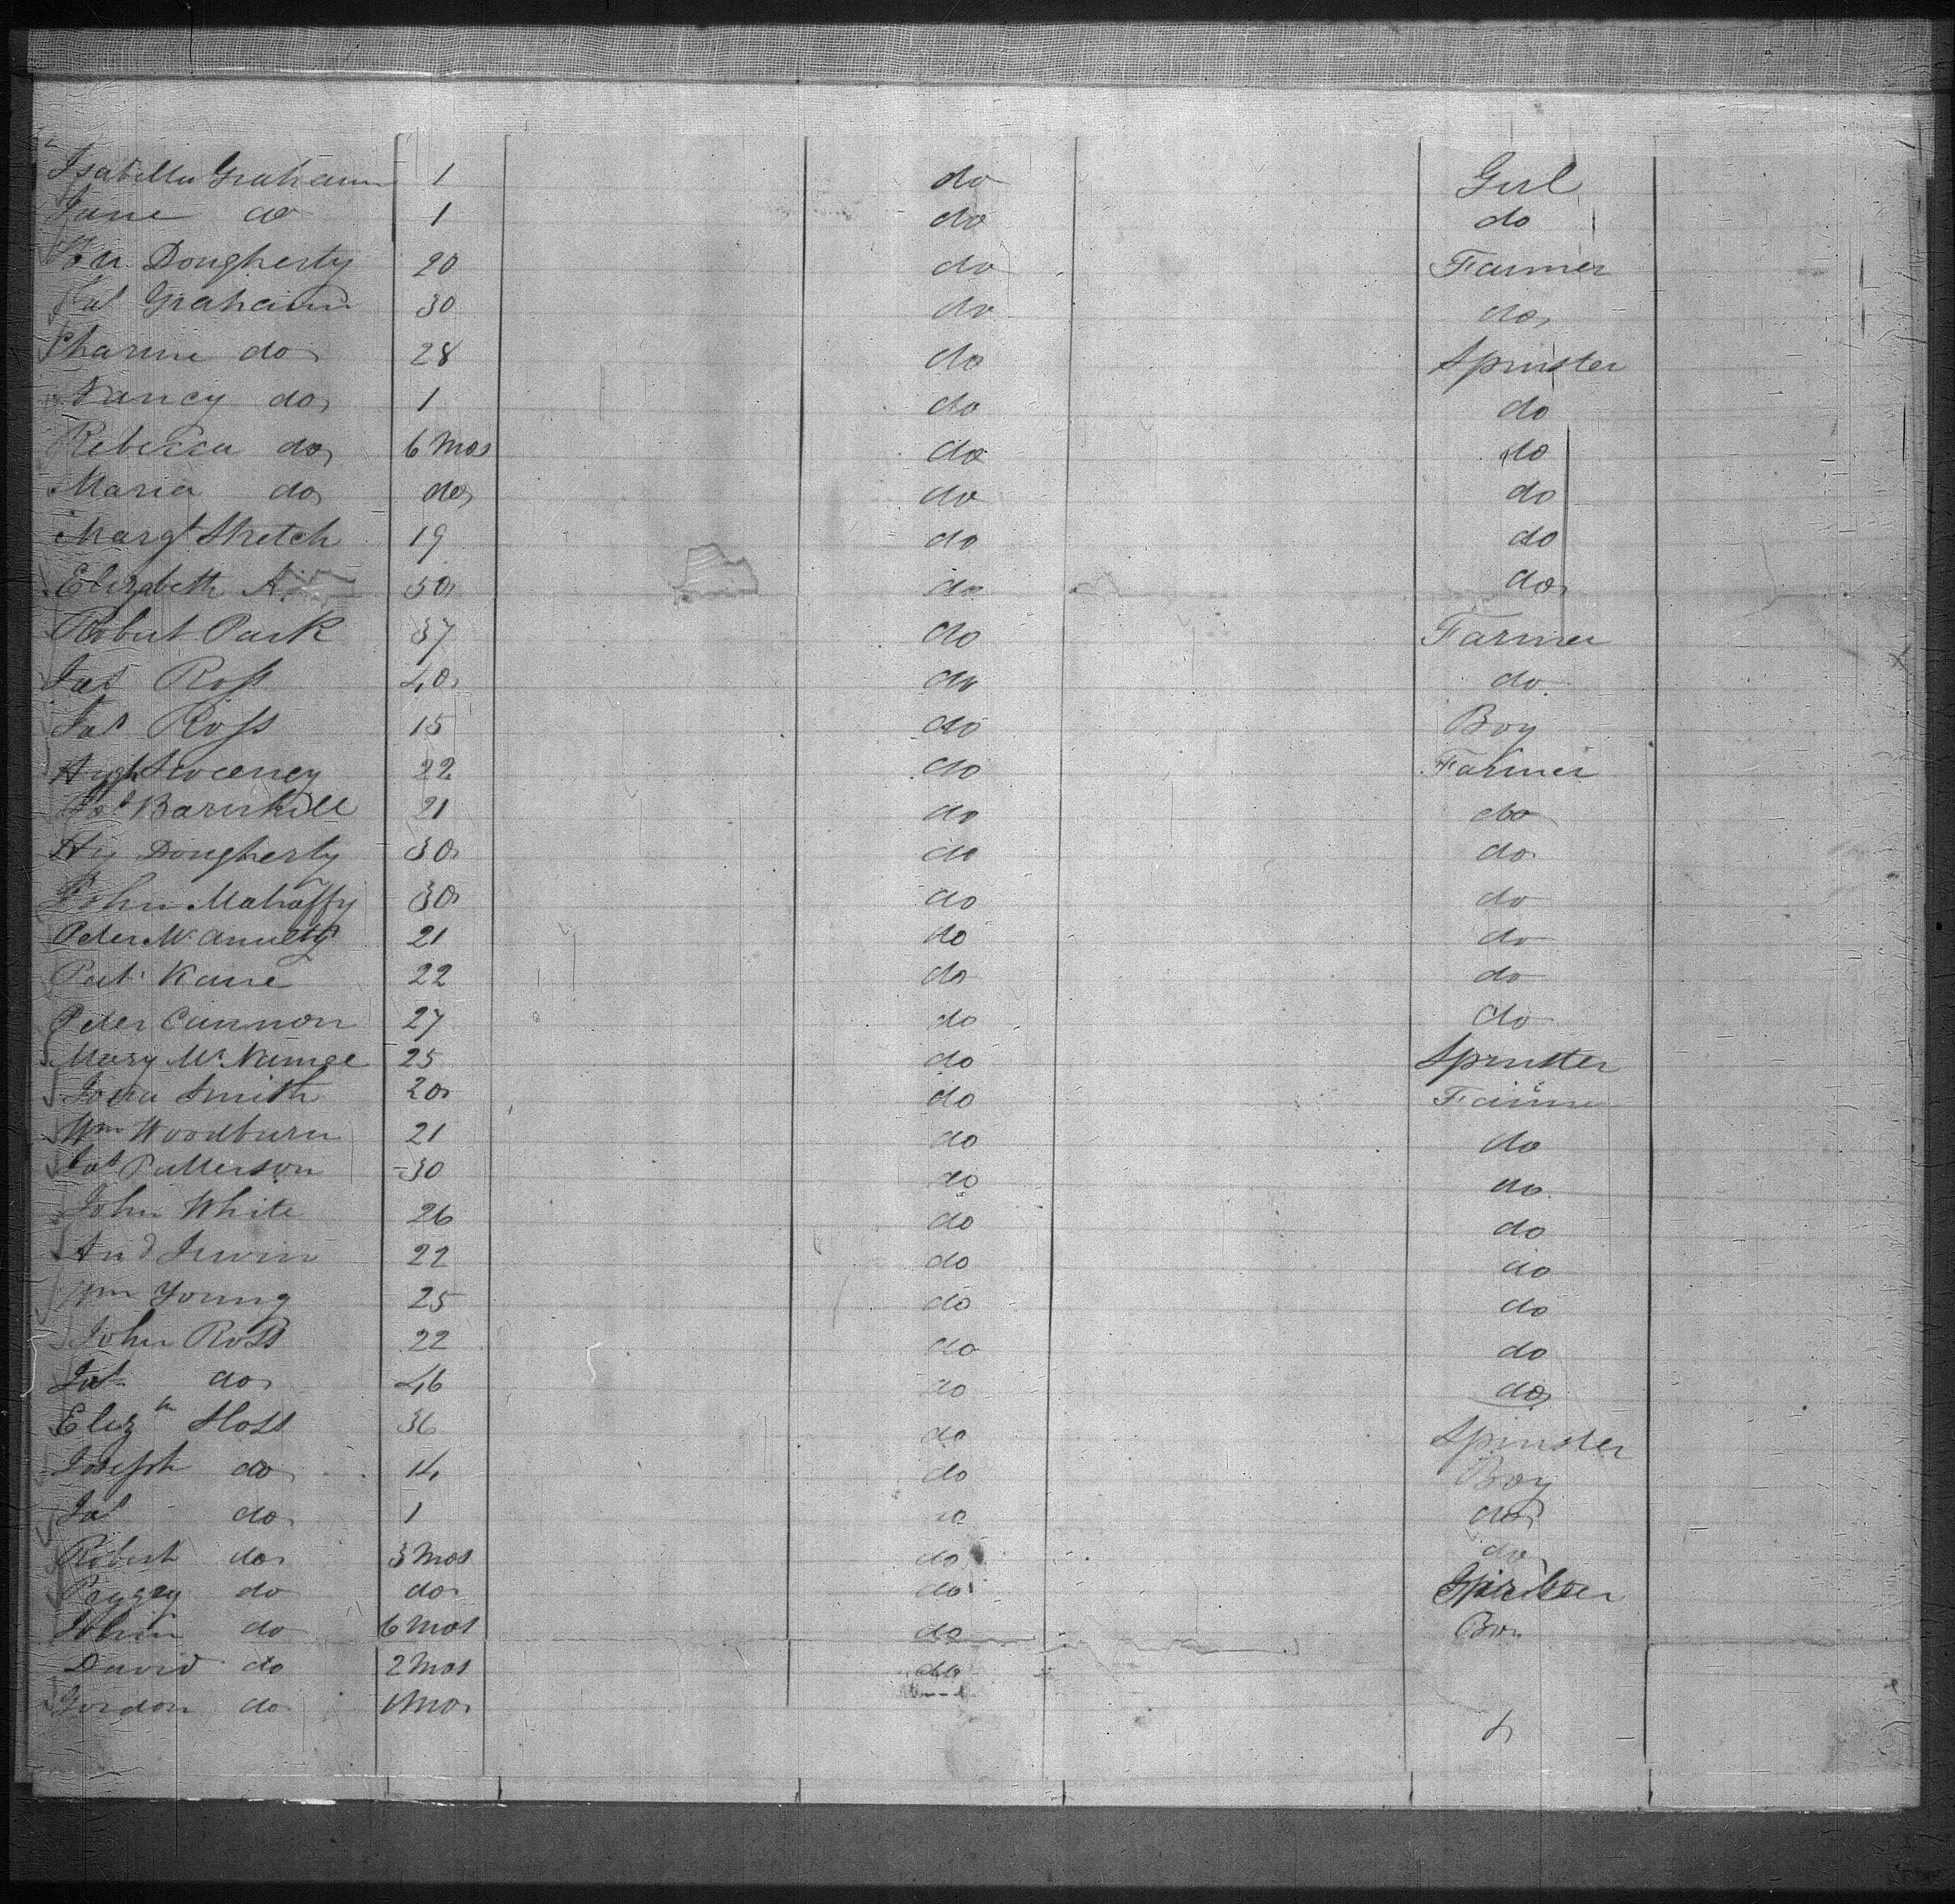 Isabella Graham 1 do Girl
Jane do 1 do do
Dougherty 20 do Farmer
Jas Graham 30 do do
28 do Spinster
Nancy do 1 do do
Rebecca do 6 mos do do
Maria do do do do
Margt Stretch 19 do do
Elizabeth 30 do do
Robert Park 37 do Farmer
Jas Ross 40 do do
Jas Ross 15 do Boy
Hugh Sweeney 22 do Farmer
Jas Barnhill 21 do do
Hy Dougherty 30 do do
John Mahaffy 30 do do
Peter 21 do do
Pat Kane 22 do do
Peter Cannon 27 do do
Mary 25 do Spinster
Smith 20 do
Wm Woodburn 21 do do
Jas Patterson 30 do do
John White 26 do do
And Irwin 22 do do
Wm Young 25 do do
John Ross 22 do do
Jas do 46 do do
Elizth 36 do Spinster
Joseph do 14 do Boy
Jas do 1 do do
Robert do 3 mos do do
Peggy do do do Spinster
John do 6 mos do Boy
David do 2 mos do
Gordon do 1 mo